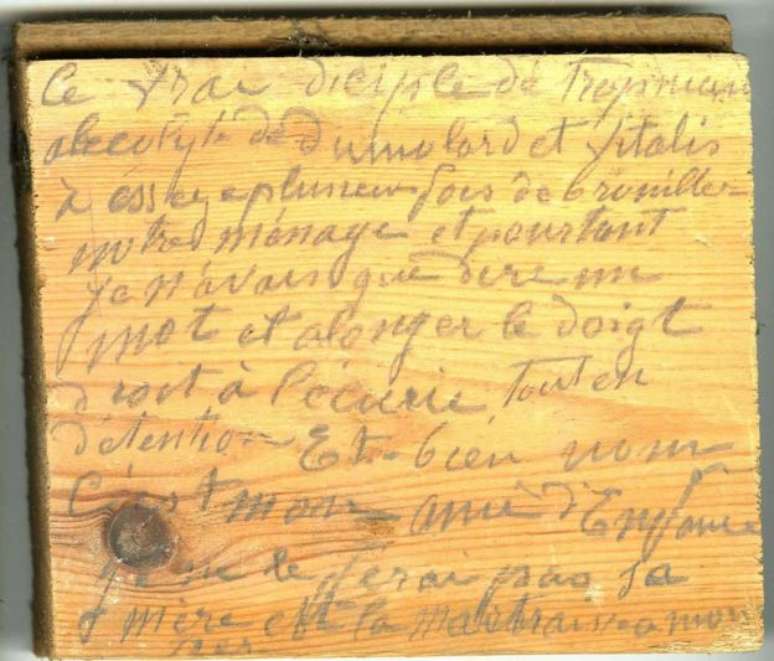 Ce vrai diciple de Tropman
alecolyte de Dumolard et Vitalis
à éssayé plusieur fois de brouiller
notre ménage et pourtant
je n'avais que dire un
mot et alonger le doigt
droit à l'écurie tout en
détention Et bien nom
C'est mon ami d'Enfance
je ne le ferai pas Sa
mère est la maitraisse a mon